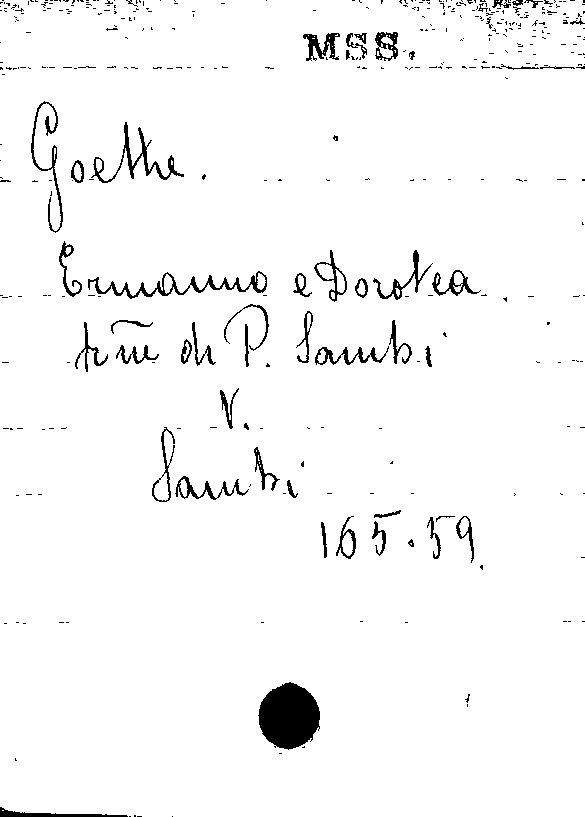 MSS.
Goethe.
Ermanno e Dorotea
tr̅ne di P. Sambi
V.
Sambi
165.59.